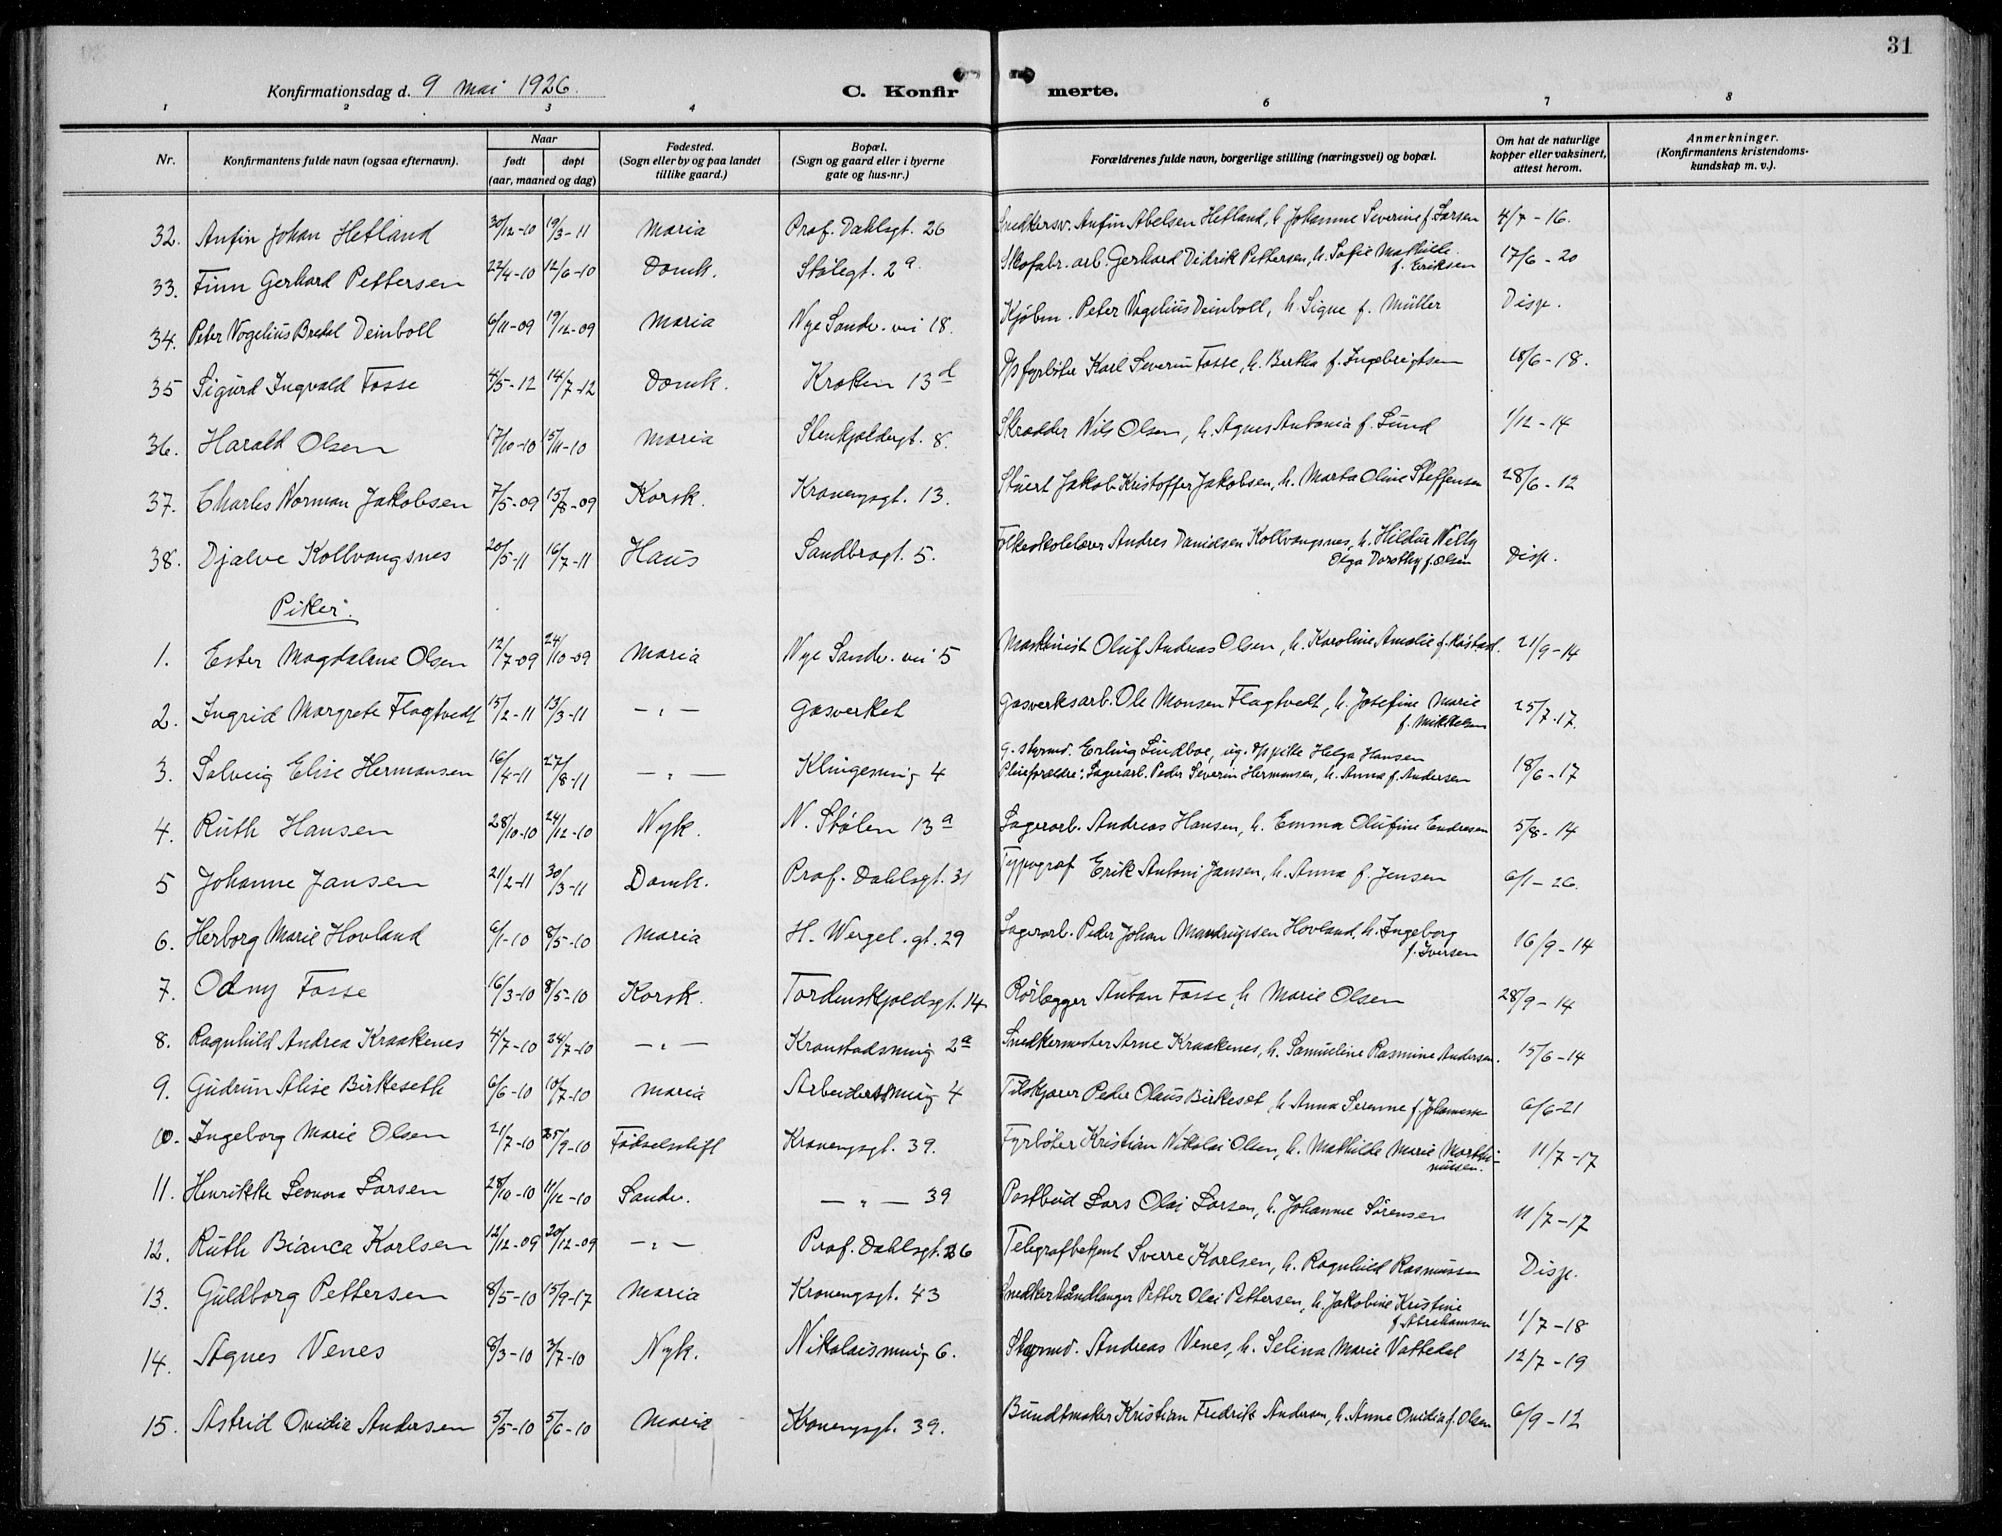 31
Konfirmationsdag d. 9 mai 1926.
C. Konfirmerte.
1 2 3 4 6 7 8
Nr.
Konfirmantens fulde navn (ogsaa efternavn).
Naar
født
døpt
(aar, maaned og dag)
Fødested.
(Sogn eller by og paa landet
tillike gaard.)
Bopæl.
(Sogn og gaard eller i byerne
gate og hus-nr.)
Forældrenes fulde navn, borgerlige stilling (næringsvei) og bopæl.
Om hat de naturlige
kopper eller vaksinert,
attest herom.
Anmerkninger.
(Konfirmantens kristendoms-
kundskap m. v.).
32. Anfin Johan Hetland 30/12-10 19/3-11 Maria Prof. Dahlsgt. 26 Snedkersv. Anfin Abelsen Hetland, h. Johanne Severine f. Larsen 4/7-16.
33. Finn Gerhard Pettersen 22/4-10 12/6-10 Domk. Stølegt. 2a. Skofabr. arb. Gerhard Didrik Pettersen, h. Sofie Mathilde
f. Eriksen 17/6-20
34. Peter Vogelius Bredal Deinboll 6/11-09 19/12-09 Maria Nye Sandv. vei 18. Kjøbm. Peter Vogelius Deinboll, h. Signe f. Müller Disp.
35 Sigurd Ingvald Fosse 4/5-12 14/7-12 Domk. Kroken 13d D/s fyrbøter Karl Severin Fosse, h. Bertha f. Ingebrigtsen 18/6-18.
36. Harald Olsen 17/10-10 15/11-10 Maria Stenkjeldergt. 8. Skrædder Nils Olsen, h. Agnes Antonia f. Lund 1/12-14
37. Charles Norman Jakobsen 7/5-09 15/8-09 Korsk. Kronengsgt. 13. Stuert Jakob Kristoffer Jakobsen, h. Marta Oline Steffensen 28/6-12
38. Djalve Kollvangsnes 20/5-11 16/7-11 Haus Sandbrogt. 5. Folkeskolelærer Andres Danielsen Kollvangsnes, h. Hildur Nelly
Olga Dorothy f. Olsen Disp.
Piker.
1. Ester Magdalena Olsen 12/7-09 24/10-09 Maria Nye Sandv. vei 5 Maskinist Oluf Andreas Olsen, h. Karoline Amalie f. 21/9-14
2. Ingrid Margrete Flagtvedt 15/2-11 13/3-11 — " — Gasverket Gasverksarb. Ole Monsen Flagtvedt, h. Josefine Marie
f. Mikkelsen 25/7-17.
3. Solveig Elise Hermansen 16/4-11 27/8-11 — " — Klingesmug 4 g. styrmd. Erling Lindboe, ug. pike Helga Hansen
Pleieforældre: Lagerarb. Peder Severin Hermansen, h. Anna f. Andersen 18/6-17
4. Ruth Hansen 28/10-10 24/12-10 Nyk. N. Stølen 13a Lagerarb. Andreas Hansen, h. Emma Olufine Endresen 5/8-14
5 Johanne Jansen 21/2-11 30/3-11 Domk. Prof. Dahlsgt. 31 Typograf Erik Antoni Jansen, h. Anna f. Jensen 6/1-26.
6. Herborg Marie Hovland 6/1-10 8/5-10 Maria H. Wergel. gt. 29 Lagerarb. Peder Johan Mandrupsen Hovland, h. Ingeborg
f. Iversen 16/9-14
7. Odny Fosse 16/3-10 8/5-10 Korsk. Tordenskjoldsgt. 14 Rørlægger Anton Fosse, h. Marie Olsen 28/9-14
8. Ragnhild Andrea Kraakenes 4/7-10 24/7-10 — " — Kronstadsmug 2a Snedkermester Arne Kraakenes, h. Samueline Rasmine Andersen. 15/6-14
9. Gudrun Alise Birkeseth 6/6-10 10/7-10 Maria Arbeidersmug 4 Tilskjærer Peder Olaus Birkeset, h. Anna Serenne f. Johannessen 6/6-21
10. Ingeborg Marie Olsen 21/7-10 25/9-10 Fødselsstift Kronengsgt. 39. Fyrbøter Kristian Nikolai Olsen, h. Mathilde Marie Marthi-
nussen. 11/7-17
11. Henrikke Leonora Larsen 28/10-10 11/12-10 Sandv. — " — 39 Postbud Lars Olai Larsen, h. Johanne Sørensen 11/7-17
12. Ruth Bianca Karlsen 12/12-09 20/12-09 — " — Prof. Dahlsgt. 36 Telegrafbetjent Sverre Karlsen, h. Ragnhild Rasmussen Disp.
13. Guldborg Pettersen 8/5-10 15/9-17 Maria Kronengsgt. 43 Snedkerhåndlanger Petter Olai Pettersen, h. Jakobine Kristine
f. Abrahamsen 1/7-18
14. Agnes Venes 8/3-10 3/7-10 Nyk. Nikolaismug 6. Styrmd. Andreas Venes, h. Selina Marie Vattedal 12/7-19
15. Astrid Ovidia Andersen 5/5-10 5/6-10 Maria Kronengsgt. 39. Bundtmaker Kristian Fredrik Andersen, h. Anna Ovidia f. Olsen 6/9-12